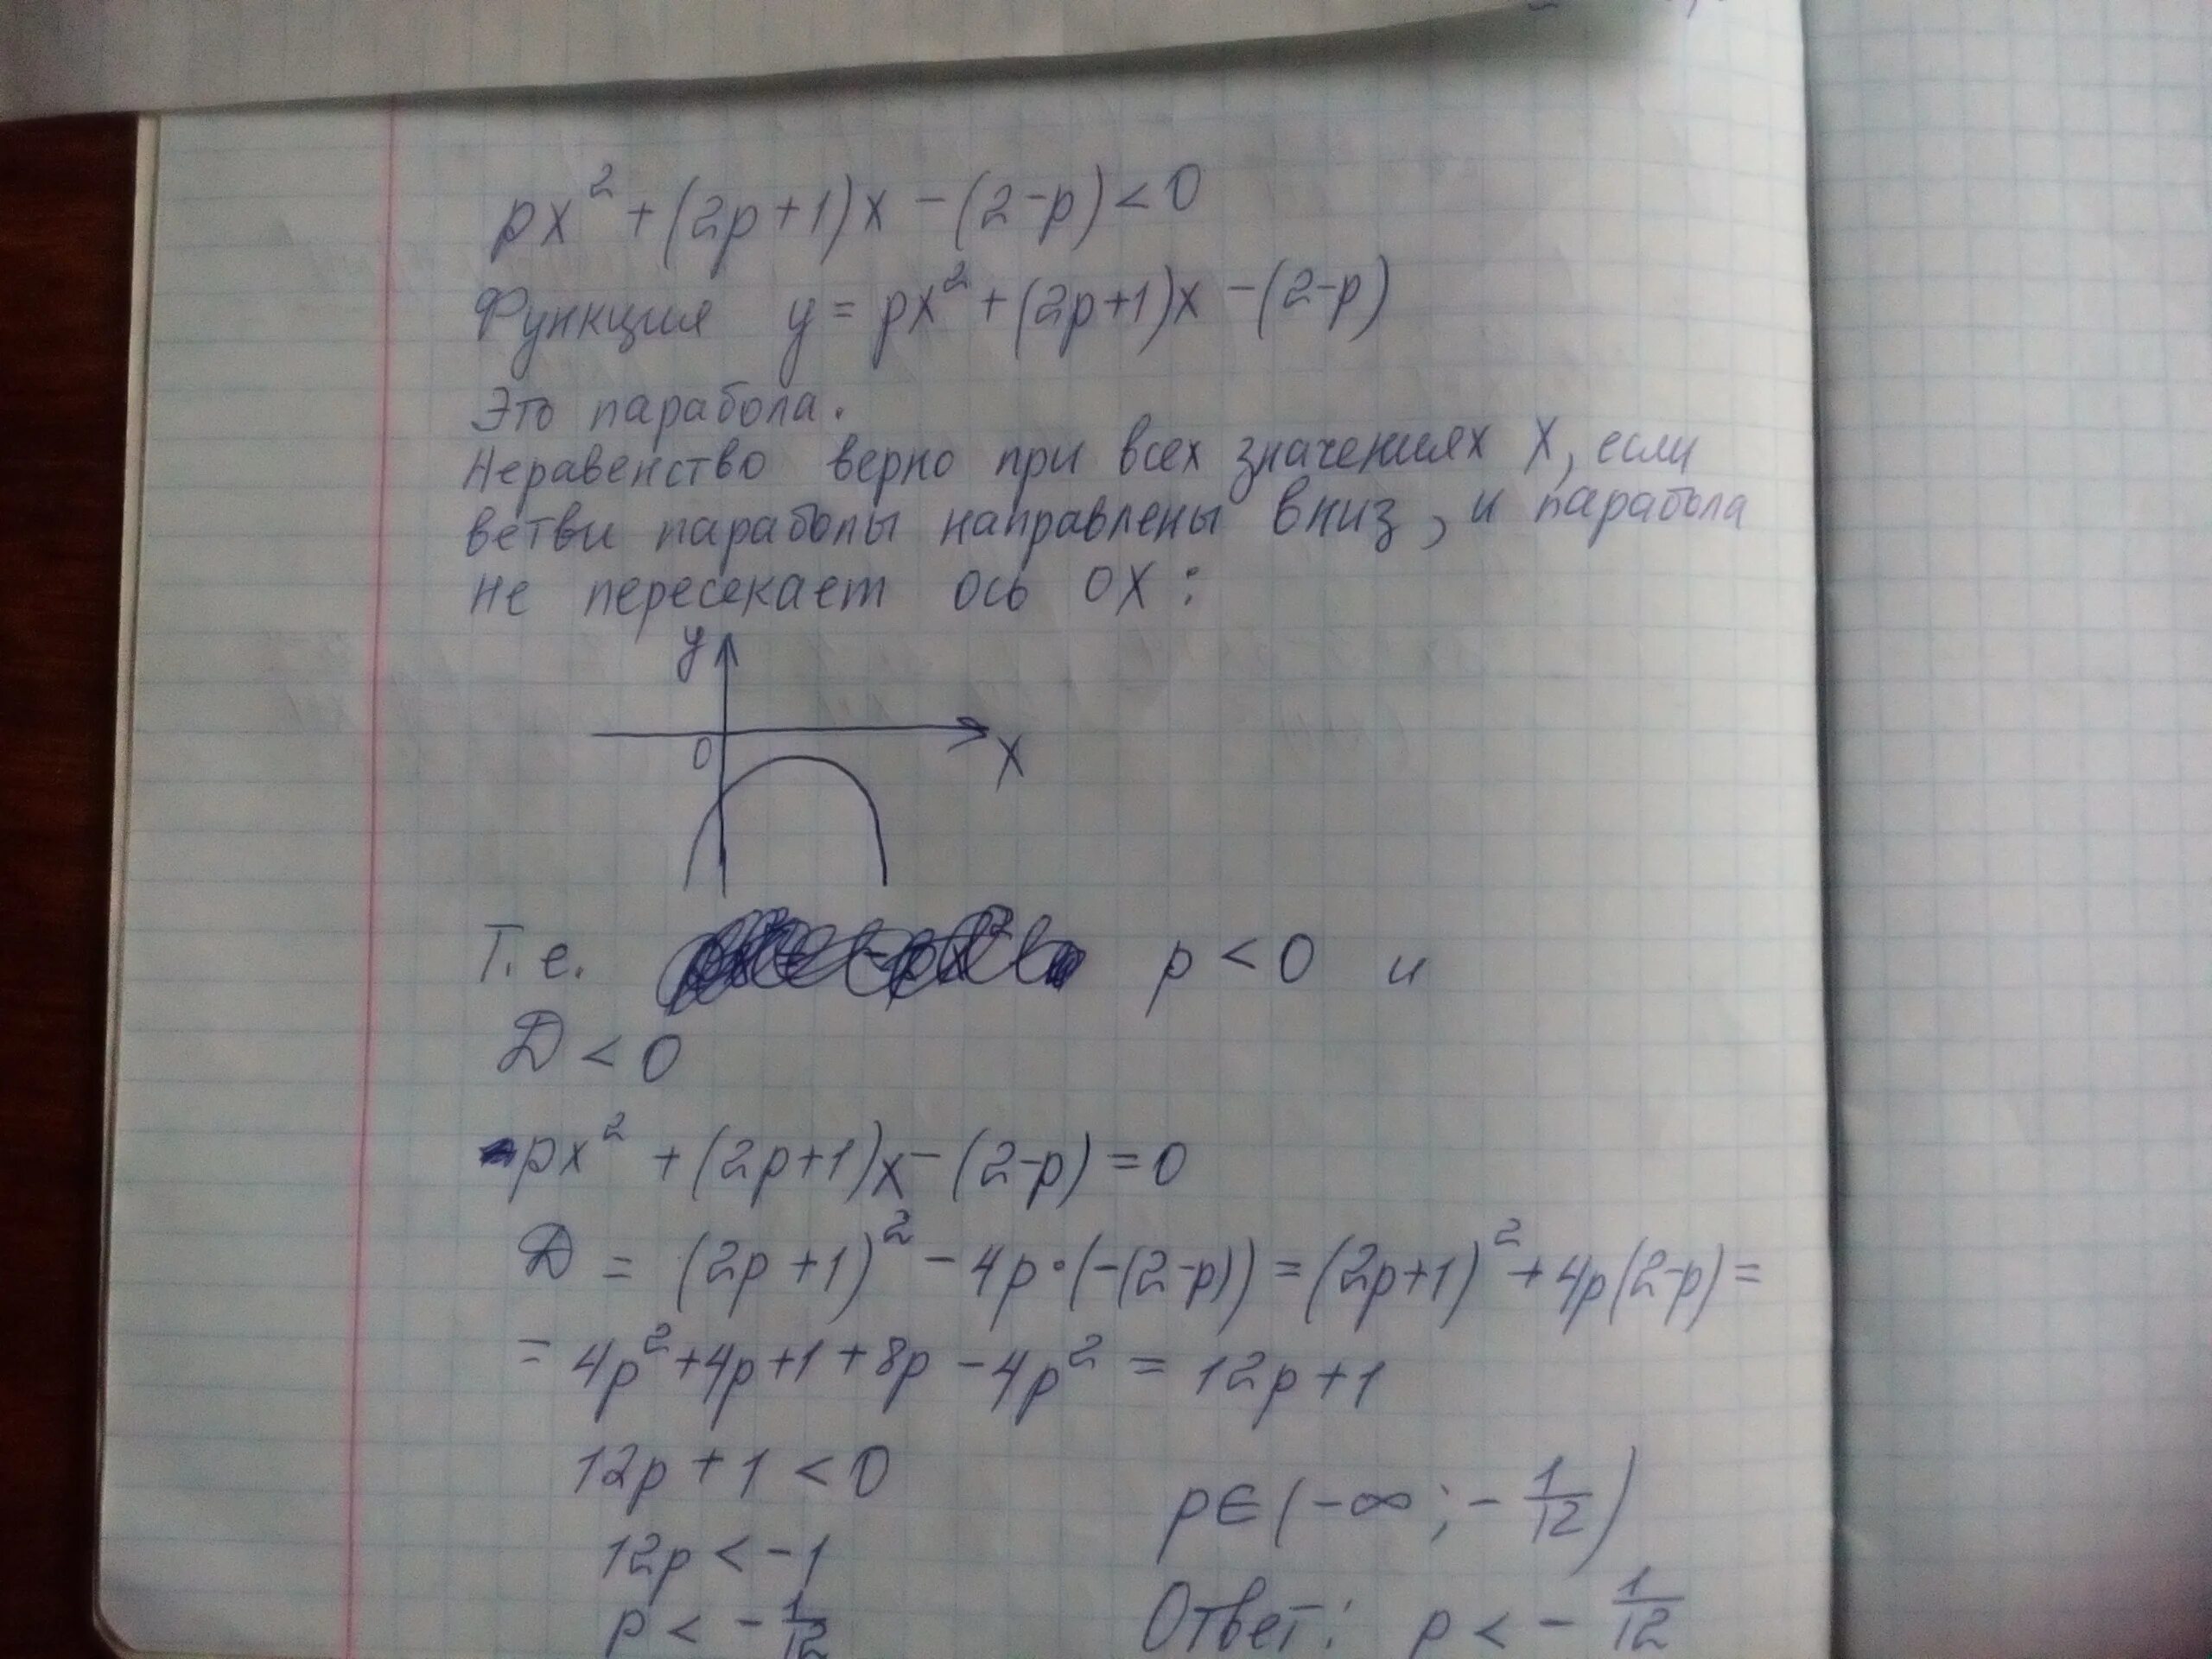 px² + (2p+1)x - (2-p) < 0
Функция y = px² + (2p+1)x - (2-p)
Это парабола.
Неравенство верно при всех значениях X, если
ветви параболы направлены вниз, и парабола
не пересекает ось OX :
y
0
X
Т.е. p < 0 и
D < 0
px² + (2p+1)x - (2-p) = 0
D = (2p+1)² - 4p·(-(2-p)) = (2p+1)² + 4p(2-p) =
= 4p² + 4p + 1 + 8p - 4p² = 12p + 1
12p + 1 < 0
12p < -1
p < - 1/12
p ∈ (-∞ ; - 1/12)
Ответ: p < - 1/12